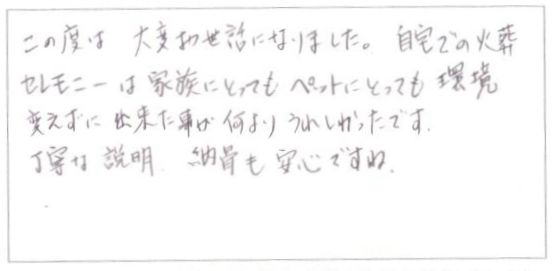 この度は 大変お世話になりました。 自宅での火葬
セレモニーは家族にとってもペットにとっても環境
変えずに出来た事が何よりうれしかったです.
丁寧な説明. 納骨も安心ですね.